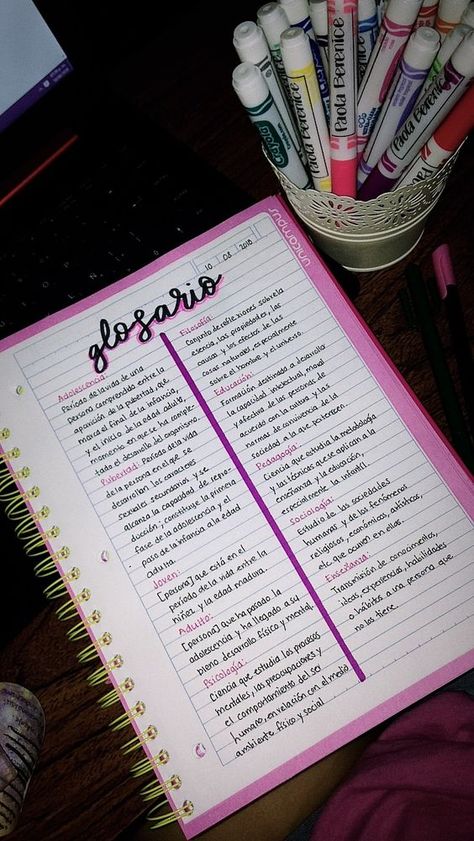 Crayola
Paola Berenice
Paola Berenice
Paola Berenice
unicampus
10 08 2018
glosario
Adolescencia:
Período de la vida de una
persona comprendido entre la
aparición de la pubertad, que
marca el final de la infancia,
y el inicio de la edad adulta,
momento en que se ha comple-
tado el desarrollo del organismo.
Pubertad: Período de la vida
de la persona en el que se
desarrollan los caracteres
sexuales secundarios y se
alcanza la capacidad de repro-
ducción; constituye la primera
fase de la adolescencia y el
paso de la infancia a la edad
adulta.
Joven:
[persona] que está en el
período de la vida entre la
niñez y la edad madura.
Adulto:
[persona] que ha pasado la
adolescencia y ha llegado a su
pleno desarrollo físico y mental.
Psicología:
Ciencia que estudia los procesos
mentales, las preocupaciones y
el comportamiento del ser
humano, en relación con el medio
ambiente físico y social
Filosofía:
Conjunto de reflexiones sobre la
esencia, las propiedades, las
causas y los efectos de las
cosas naturales, especialmente
sobre el hombre y el universo.
Educación:
Formación destinada a desarrollar
la capacidad intelectual, moral
y afectiva de las personas de
acuerdo con la cultura y las
normas de convivencia de la
sociedad a la que pertenecen.
Pedagogía:
Ciencia que estudia la metodología
y las técnicas que se aplican a la
enseñanza y la educación,
especialmente la infantil.
Sociología:
Estudio de las sociedades
humanas y de los fenómenos
religiosos, económicos, artísticos,
etc. que ocurren en ellas.
Enseñanza:
Transmisión de conocimientos,
ideas, experiencias, habilidades
o hábitos a una persona que
no los tiene.